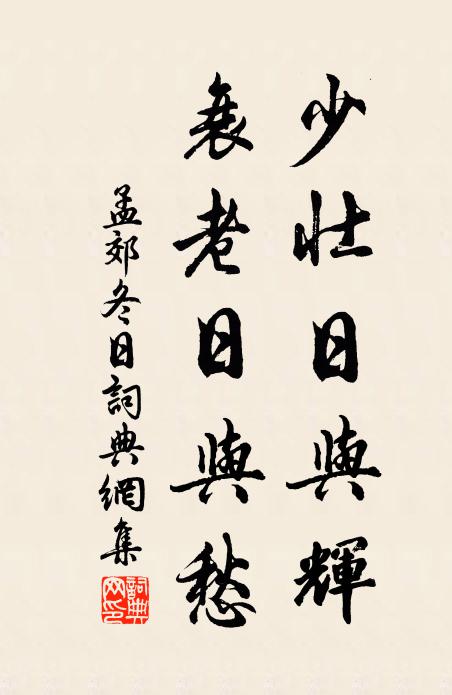 少壮日與輝
衰老日與愁
孟郊冬日詞典網集
詞典網印